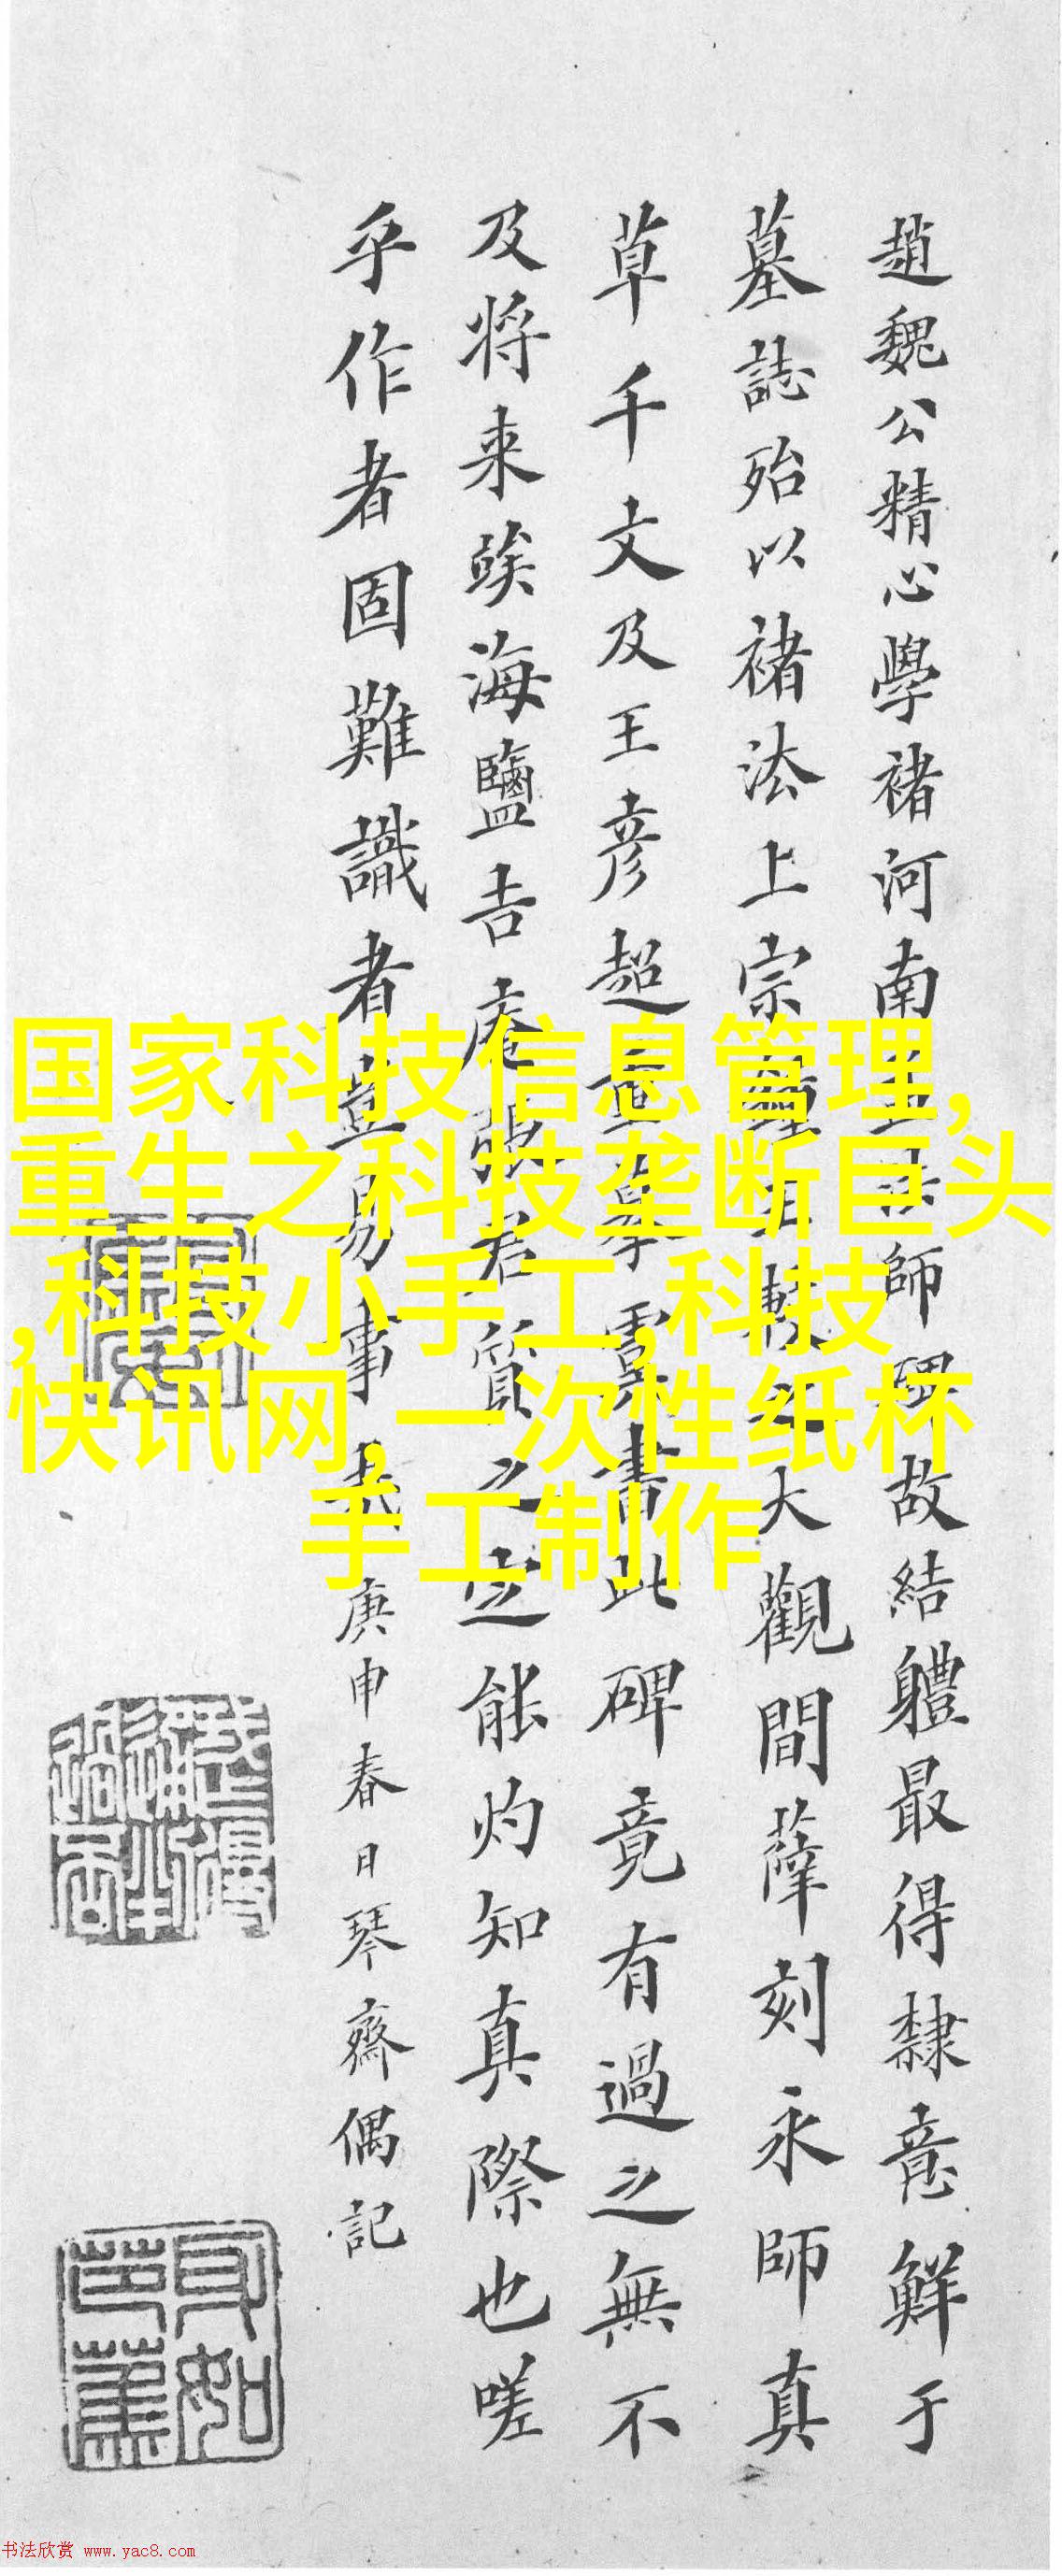 趙魏公精心學褚河南孟法師碑故結軆最得隸意鮮于
墓誌殆以褚法上宗鍾王較之大觀間薛刻永師真
草千文及王彦超重摹虞書此碑竟有過之無不
及将来俟海鹽吉庵張君質之定能灼知真際也嗟
乎作者固難識者豈易事哉庚申春日琴齋偶記
国家科技信息管理,
重生之科技垄断巨头
,科技小手工,科技
快讯网,一次性纸杯
手工制作
书法欣赏 www.yac8.com